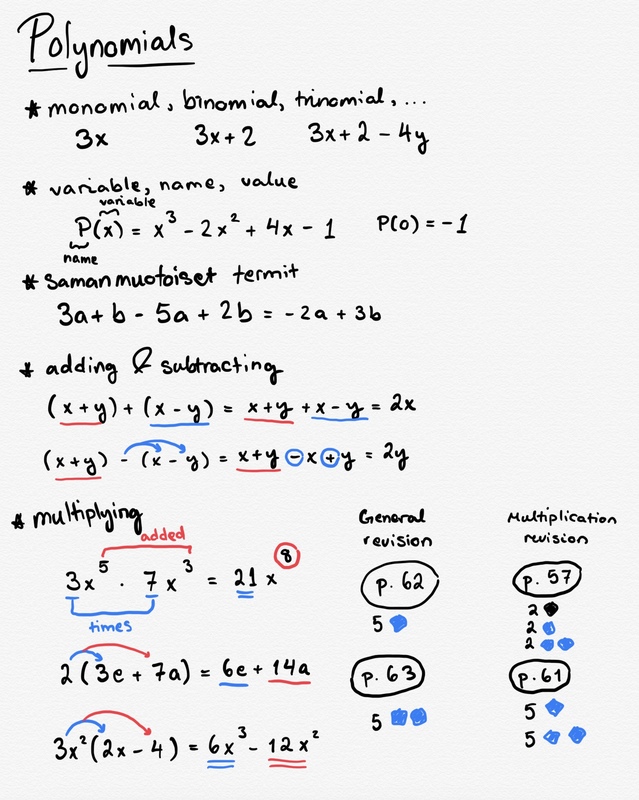 Polynomials
* monomial, binomial, trinomial, ...
3x 3x + 2 3x + 2 - 4y
* variable, name, value
variable
P(x) = x³ - 2x² + 4x - 1 P(0) = -1
name
* samanmuotoiset termit
3a + b - 5a + 2b = -2a + 3b
* adding & subtracting
(x + y) + (x - y) = x + y + x - y = 2x
(x + y) - (x - y) = x + y - x + y = 2y
* multiplying
added
3x⁵ · 7x³ = 21x⁸
times
2(3e + 7a) = 6e + 14a
3x²(2x - 4) = 6x³ - 12x²
General
revision
p. 62
5
p. 63
5
Multiplication
revision
p. 57
2
2
2
p. 61
5
5